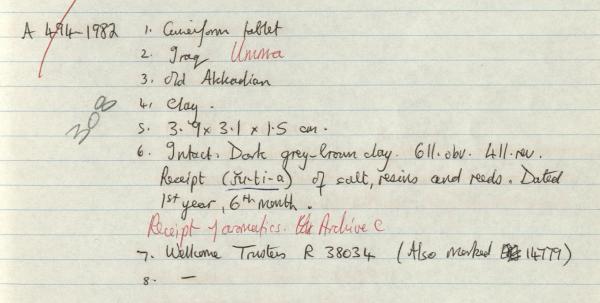 A 494-1982 1. Cuneiform tablet
2. Iraq Umma
3. Old Akkadian
308
4. Clay.
5. 3.9 x 3.1 x 1.5 cm.
6. Intact. Dark grey-brown clay. 6ll. obv. 4ll. rev.
Receipt (šu-ti-a) of salt, resins and reeds. Dated
1st year, 6th month.
Receipt of aromatics. Archive C
7. Wellcome Trustees R 38034 (Also marked 14779)
8. —